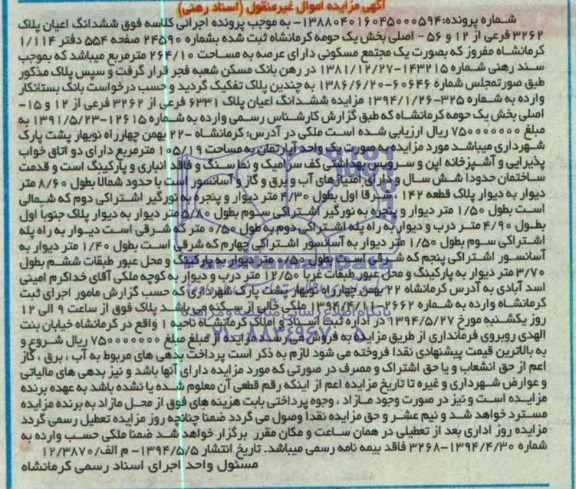 آگهی مزایده اموال غیرمنقول (اسناد رهنی)
شماره پرونده:۱۳۸۸۰۴۰۱۶۰۴۵۰۰۰۵۹۴- به موجب پرونده اجرائی کلاسه فوق ششدانگ اعیان پلاک
۳۲۶۲ فرعی از ۱۲ و ۵۶ - اصلی بخش یک حومه کرمانشاه ثبت شده بشماره ۲۴۵۹۰ صفحه ۵۵۴ دفتر ۱/۱۱۴
کرمانشاه مفروز که بصورت یک مجتمع مسکونی دارای عرصه به مساحت ۲۶۴/۱۰ مترمربع میباشد که بموجب
سند رهنی شماره ۱۴۳۲۱۵-۱۳۸۱/۱۲/۲۷ در رهن بانک مسکن شعبه فجر قرار گرفت و سپس پلاک مذکور
طبق صورتمجلس شماره ۶۰۶۴۶-۱۳۸۶/۶/۲۰ به چندین پلاک تفکیک گردید و حسب درخواست بانک بستانکار
وارده به شماره ۳۲۵-۱۳۹۴/۱/۲۶ مزایده ششدانگ اعیان پلاک ۶۳۳۱ فرعی از ۳۲۶۲ فرعی از ۱۲ و ۱۵-
اصلی بخش یک حومه کرمانشاه که طبق گزارش کارشناس رسمی وارده به شماره ۱۲۶۱۵-۱۳۹۱/۵/۲۳ به
مبلغ ۷۵۰۰۰۰۰۰۰ ریال ارزیابی شده است ملکی در آدرس: کرمانشاه -۲۲ بهمن چهارراه نوبهار پشت پارک
شهرداری میباشد مورد مزایده به صورت یک واحد آپارتمان به مساحت ۱۰۵/۱۹ مترمربع دارای دو اتاق خواب
پذیرایی و آشپزخانه اپن و سرویس بهداشتی کف سرامیک و نما سنگ و فاقد انباری و پارکینگ است و قدمت
ساختمان حدودا شش سال و دارای امتیاز های آب و برق و گاز و آسانسور است با حدود شمالا بطول ۸/۶۰ متر
دیوار به دیوار پلاک قطعه ۱۴۲ شرقا اول بطول ۴/۳۰ متر دیوار و پنجره به نورگیر اشتراکی دوم که شمالی
است بطول ۱/۵۰ متر دیوار و پنجره به نورگیر اشتراکی سوم بطول ۵/۸۰ متر دیوار به دیوار پلاک جنوبا اول
بطول ۴/۹۰ متر درب و دیوار به راه پله اشتراکی دوم به طول ۰/۵۰ متر که شرقی است دیوار به راه پله
اشتراکی سوم بطول ۱/۵۰ متر دیوار به آسانسور اشتراکی چهارم که شرقی است بطول ۱/۴۰ متر دیوار به
آسانسور اشتراکی پنجم که شرقی است بطول ۰/۵۰ متر دیوار به پارکینگ و محل عبور طبقات ششم بطول
۳/۷۰ متر دیوار به پارکینگ و محل عبور طبقات غربا ۱۲/۵۰ متر درب و دیوار به کوچه ملکی آقای خداکرم امینی
اسد آبادی به آدرس کرمانشاه ۲۲ بهمن چهارراه نوبهار پشت پارک شهرداری که حسب گزارش مامور اجرای ثبت
کرمانشاه وارده به شماره ۲۶۶۲-۱۳۹۴/۴/۱۱ ملکی خالی از سکنه می باشد پلاک فوق از ساعت ۹ الی ۱۲
روز یکشنبه مورخ ۱۳۹۴/۵/۲۷ در اداره ثبت اسناد و املاک کرمانشاه ناحیه ۱ واقع در کرمانشاه خیابان بنت
الهدی روبروی فرمانداری از طریق مزایده به فروش می رسد مزایده از مبلغ ۷۵۰۰۰۰۰۰۰ ریال شروع و
به بالاترین قیمت پیشنهادی نقدا فروخته می شود لازم به ذکر است پرداخت بدهی های مربوط به آب ، برق ، گاز
اعم از حق انشعاب و یا حق اشتراک و مصرف در صورتی که مورد مزایده دارای آنها باشد و نیز بدهی های مالیاتی
و عوارض شهرداری و غیره تا تاریخ مزایده اعم از اینکه رقم قطعی آن معلوم شده یا نشده باشد به عهده برنده
مزایده است و نیز در صورت وجود مازاد ، وجوه پرداختی بابت هزینه های فوق از محل مازاد به برنده مزایده
مسترد خواهد شد و نیم عشر و حق مزایده نقدا وصول می گردد ضمنا چنانچه روز مزایده تعطیل رسمی گردد
مزایده روز اداری بعد از تعطیلی در همان ساعت و مکان مقرر برگزار خواهد شد ضمنا ملکی حسب وارده به
شماره ۱۳۹۴/۴/۳۰-۳۲۶۸ فاقد بیمه نامه رسمی میباشد. تاریخ انتشار ۱۳۹۴/۵/۵- م الف/۱۲/۳۸۷۰
مسئول واحد اجرای اسناد رسمی کرمانشاه